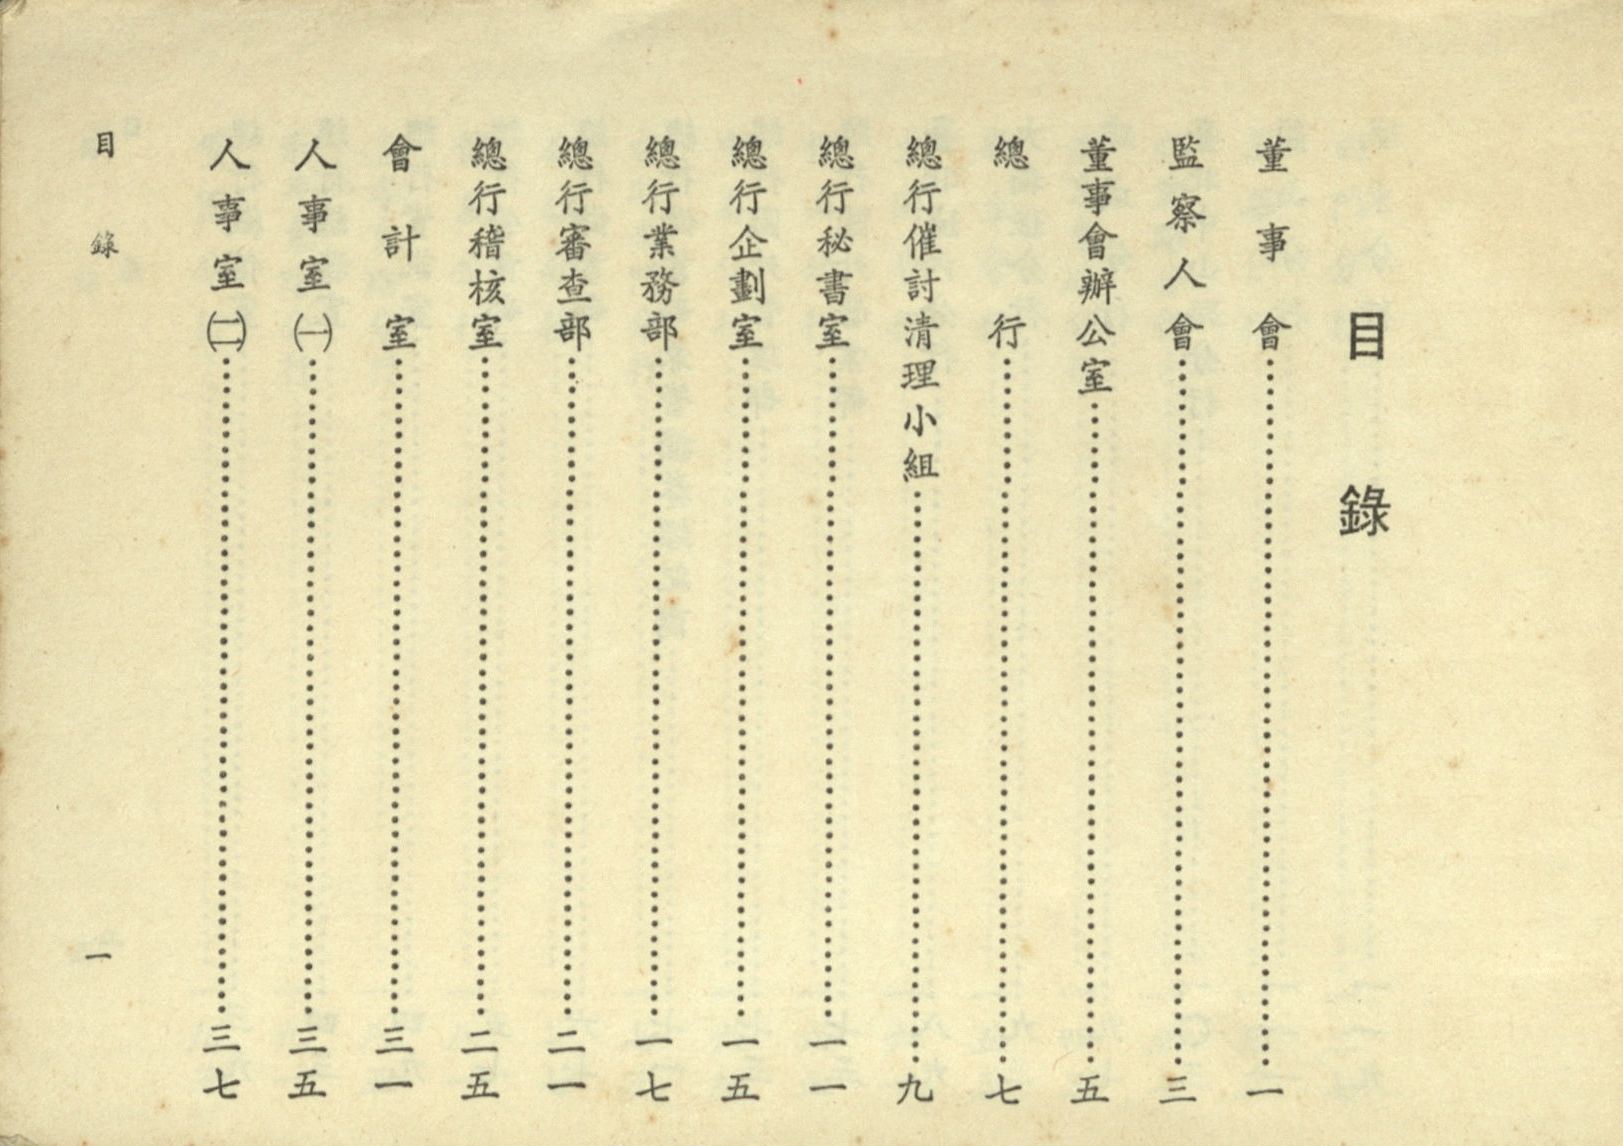 目錄
董事會……一
監察人會……三
董事會辦公室……五
總行……七
總行催討清理小組……九
總行秘書室……一一
總行企劃室……一五
總行業務部……一七
總行審查部……二一
總行稽核室……二五
會計室……三一
人事室㈠……三五
人事室㈡……三七
目錄
一